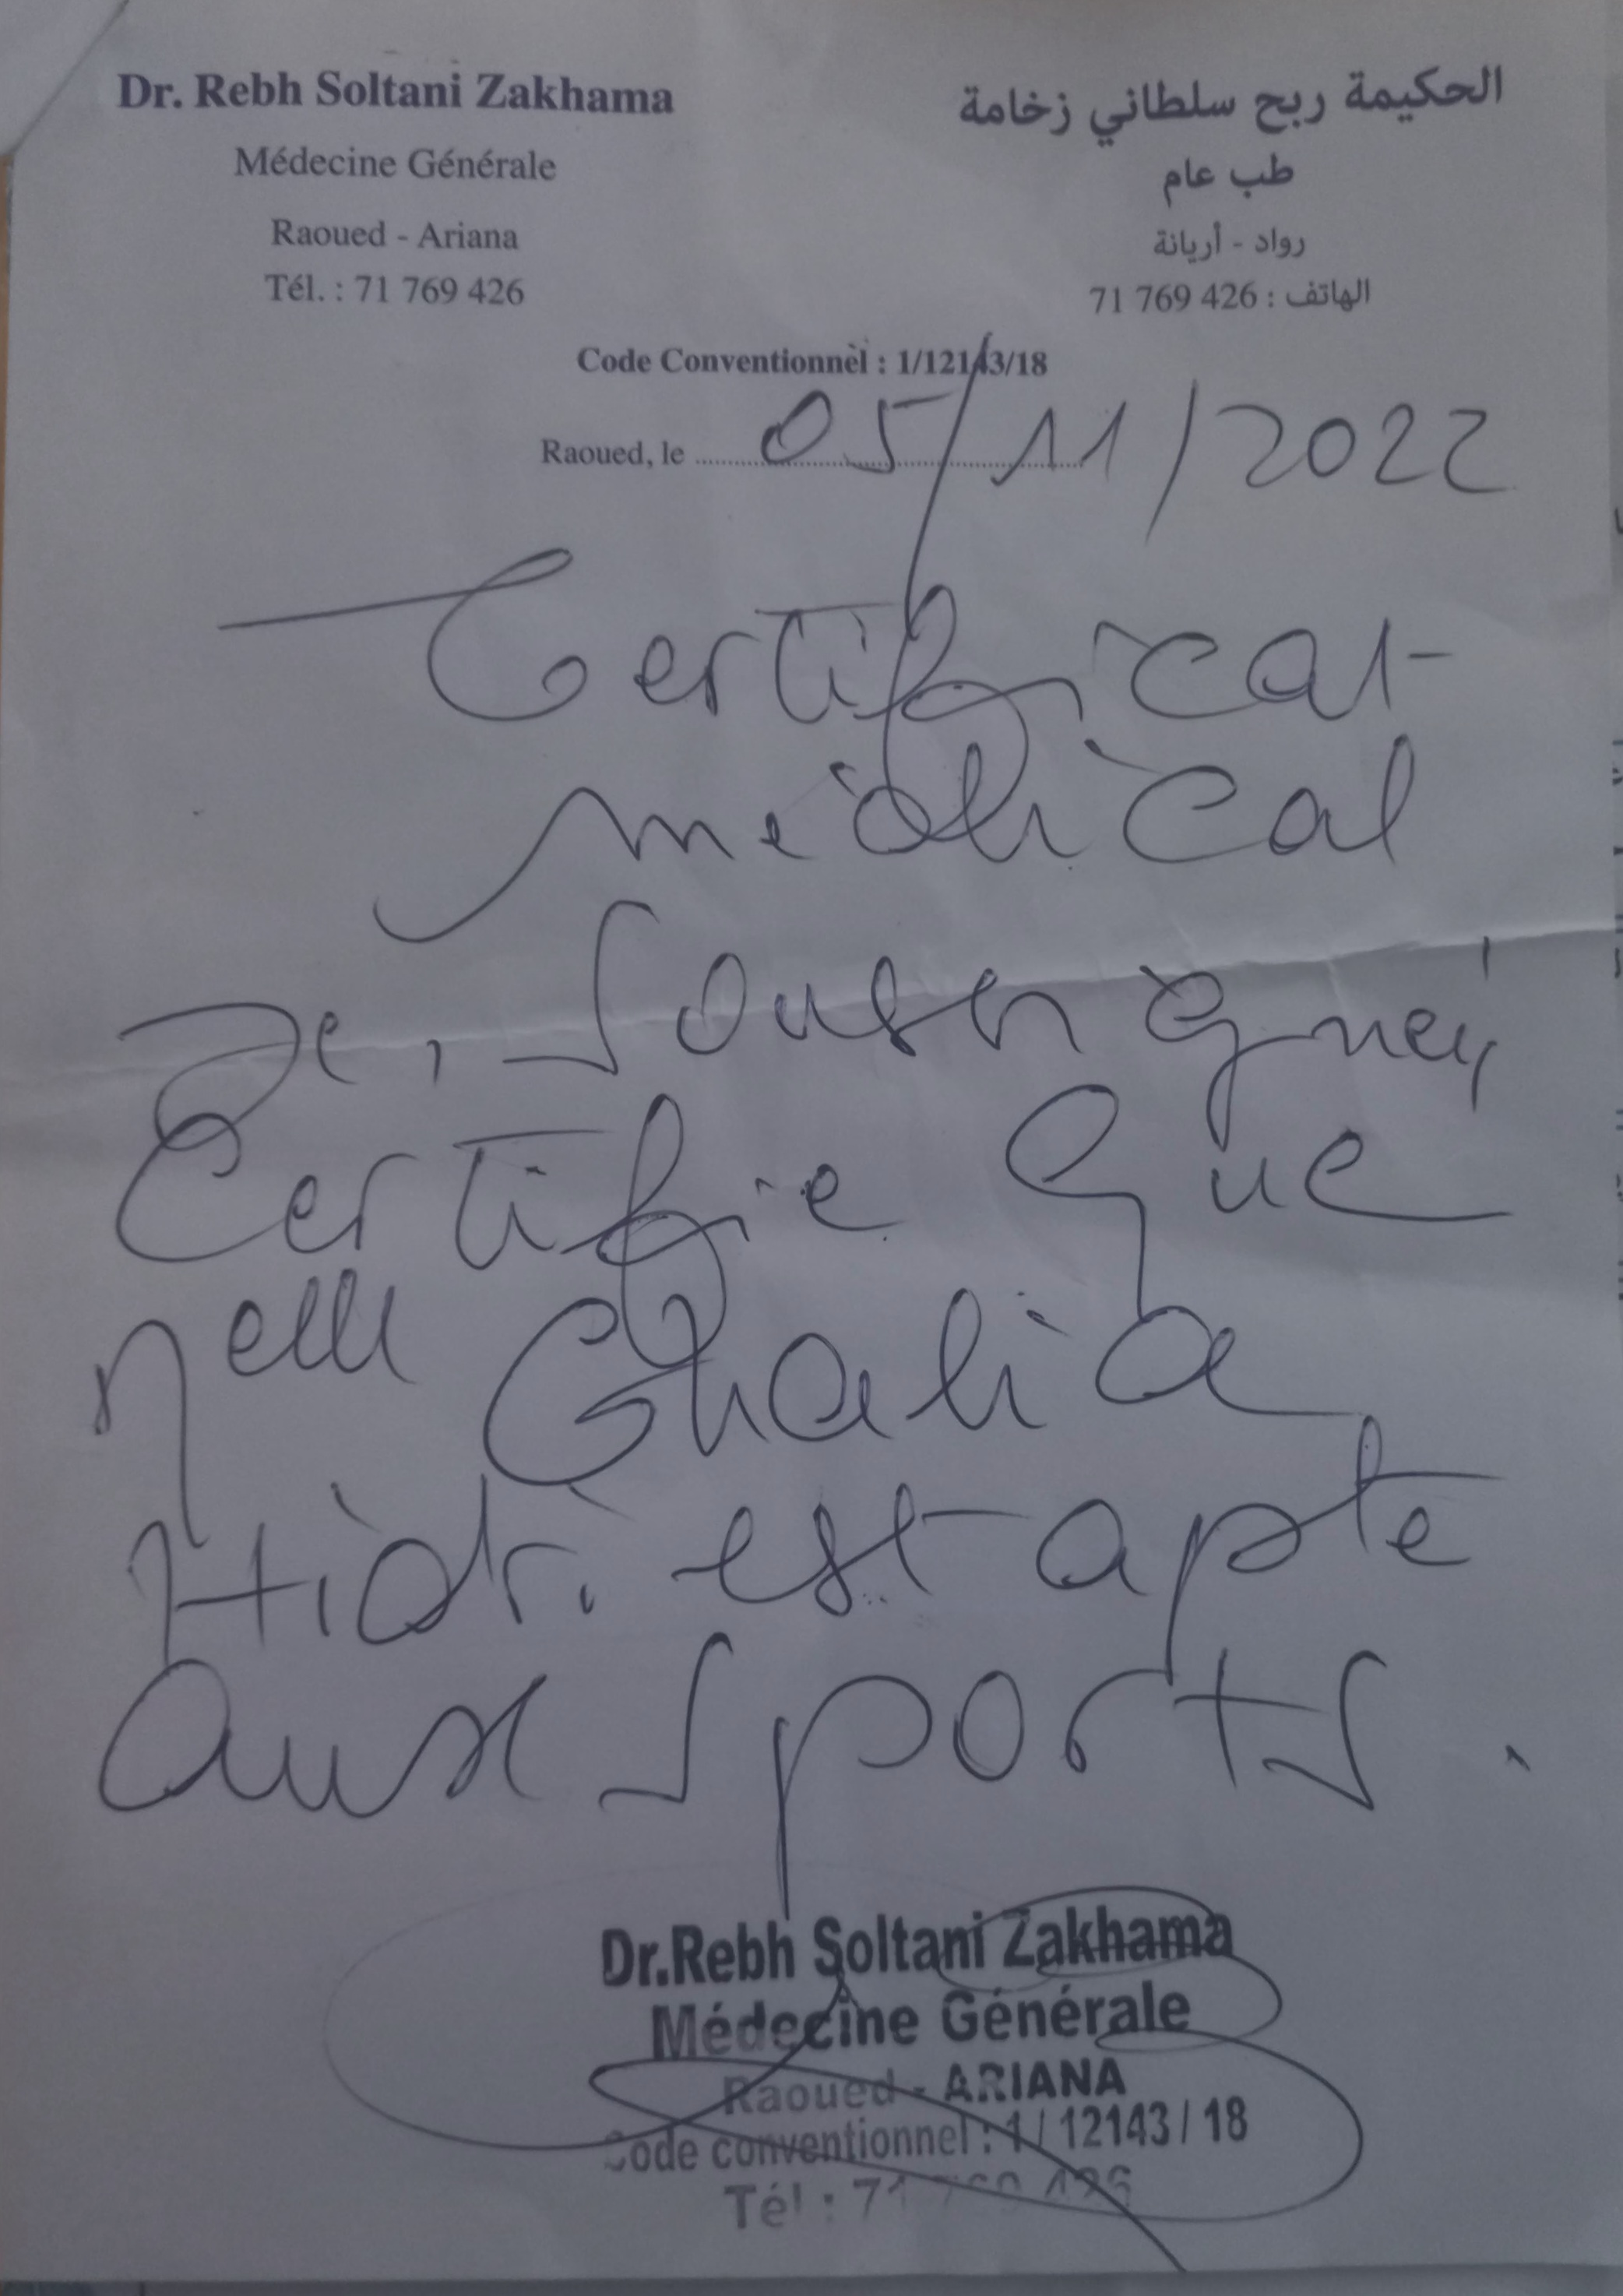 Dr. Rebh Soltani Zakhama
Médecine Générale
Raoued - Ariana
Tél. : 71 769 426
الحكيمة ربح سلطاني زخامة
طب عام
رواد - أريانة
الهاتف : 426 769 71
Code Conventionnel : 1/12143/18
Raoued, le 05/11/2022
Certificat
médical
Je, soussigné,
Certifie que
Melle Ghalia
Hidri est apte
aux sports.
Dr.Rebh Soltani Zakhama
Médecine Générale
Raoued - ARIANA
Code conventionnel : 1 / 12143 / 18
Tél : 71 769 426